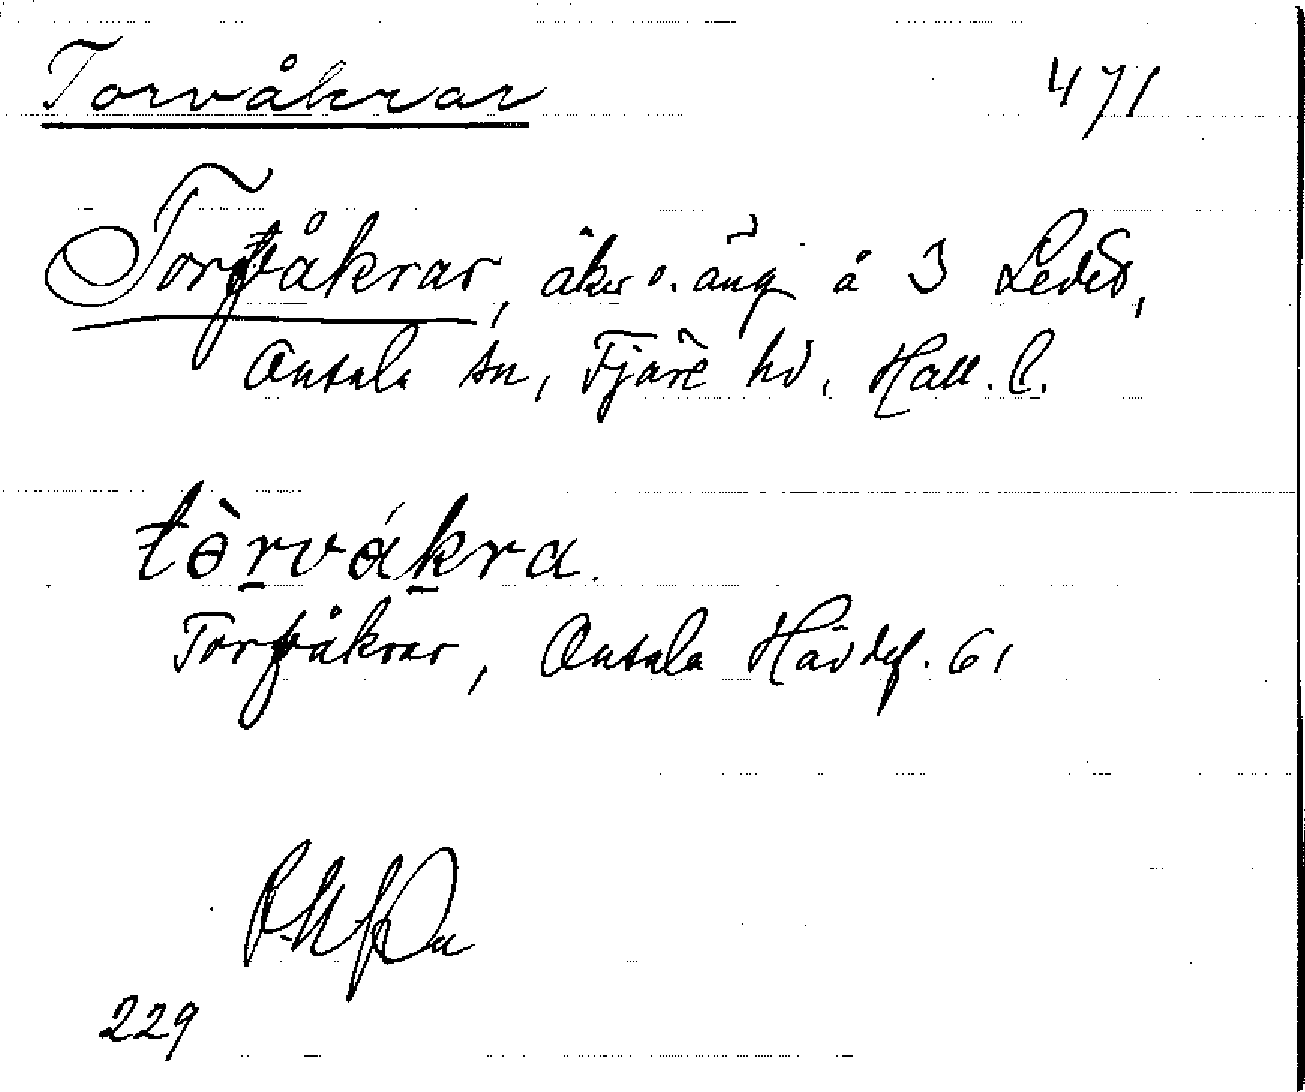 Torvåkrar 471
Torfvåkrar, åker o. äng å 3 Ledet,
Onsala sn, Fjäre hd, Hall. l.
tòrvákra.
Torfvåkrar, Onsala Hädef. 61
229